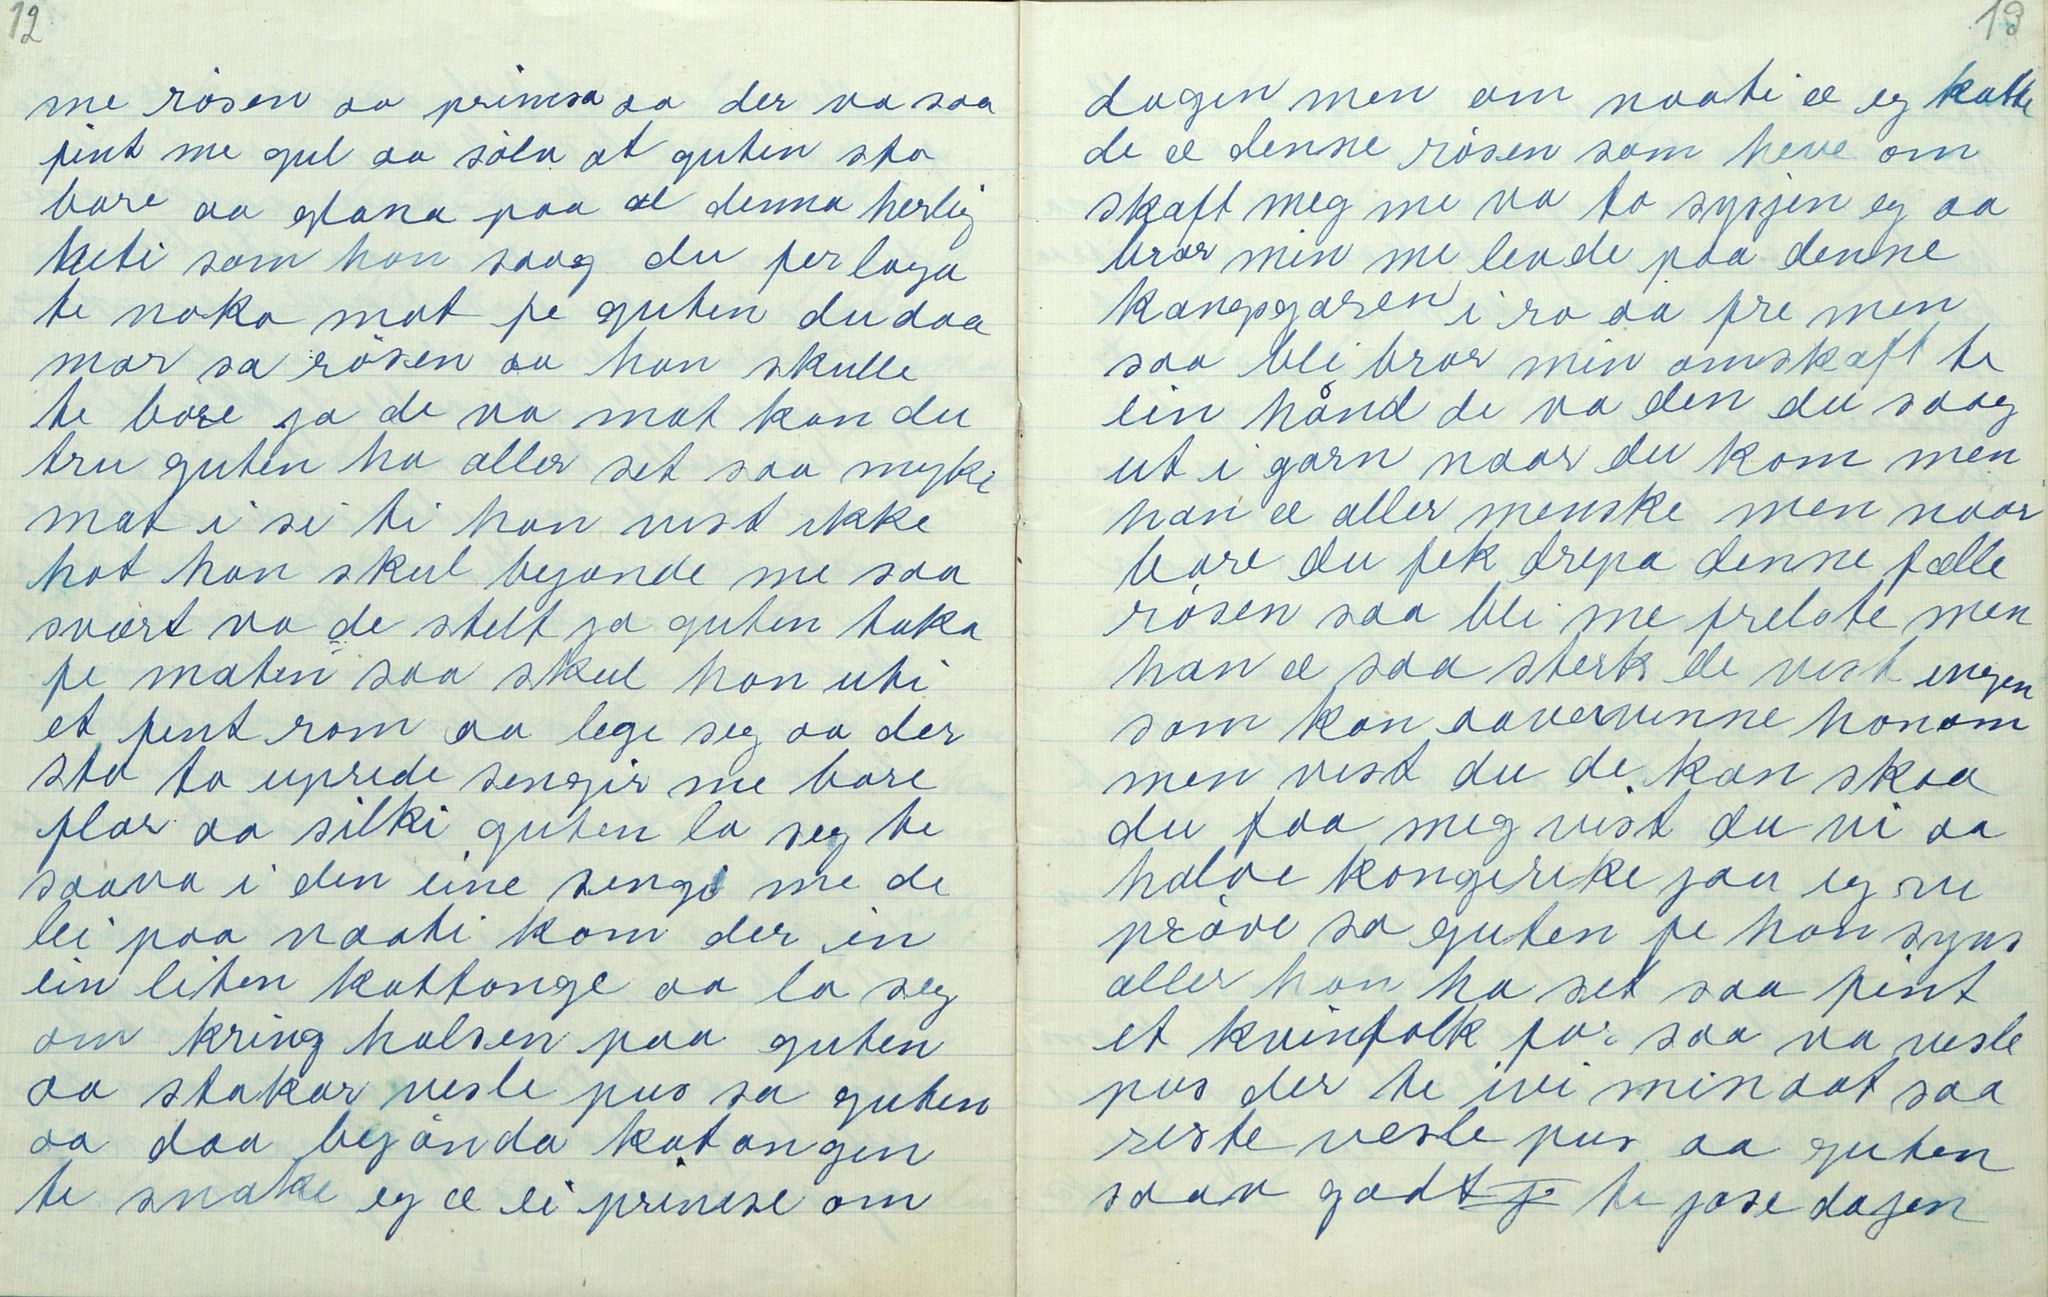 12
me risen aa prinsesa aa der va saa
pint me gul aa sölv at guten sto
bare aa glana paa al denna herlig
heti som han saag du fer laga
te noko mat fe guten du daa
mor sa risen aa han skulle
te bare ja de va mat kan du
tru guten ha aller set saa myki
mat i si ti han vist ikke
hot han skul begonde me saa
svært va de stelt ja guten taka
fe maten saa skul han uti
et pent rom aa lege seg aa der
sto to uprede sengir me bare
flor aa silki guten la seg te
saava i den eine sengi me de
lei paa naati kom der in
ein liten kattonge aa la seg
om kring halsen paa guten
aa stakar vesle pus sa guten
aa daa begönda katongen
te snake eg æ ei prinsese om
13
dagen men om naati æ eg katte
de æ denne risen som heve om
skaft meg me va to sysjen eg aa
bror min me levde paa denne
kangsgaren i ro aa fre men
saa blei bror min omskaft te
ein hånd de va den du saag
ut i garn naar du kom men
han æ aller menske men naar
bare du fek drepa denne fæle
risen saa bli me frelste men
han æ saa sterk de vist ingen
som kan aavervinne honom
men vist du de kan skaa
du faa meg vist du vi aa
halve kongerike jau eg vi
pröve sa guten fe han syns
aller han ha set saa pint
et kvinfolk for saa va vesle
pus der te ivi minaat saa
reiste vesle pus aa guten
saav godt te jose dagen